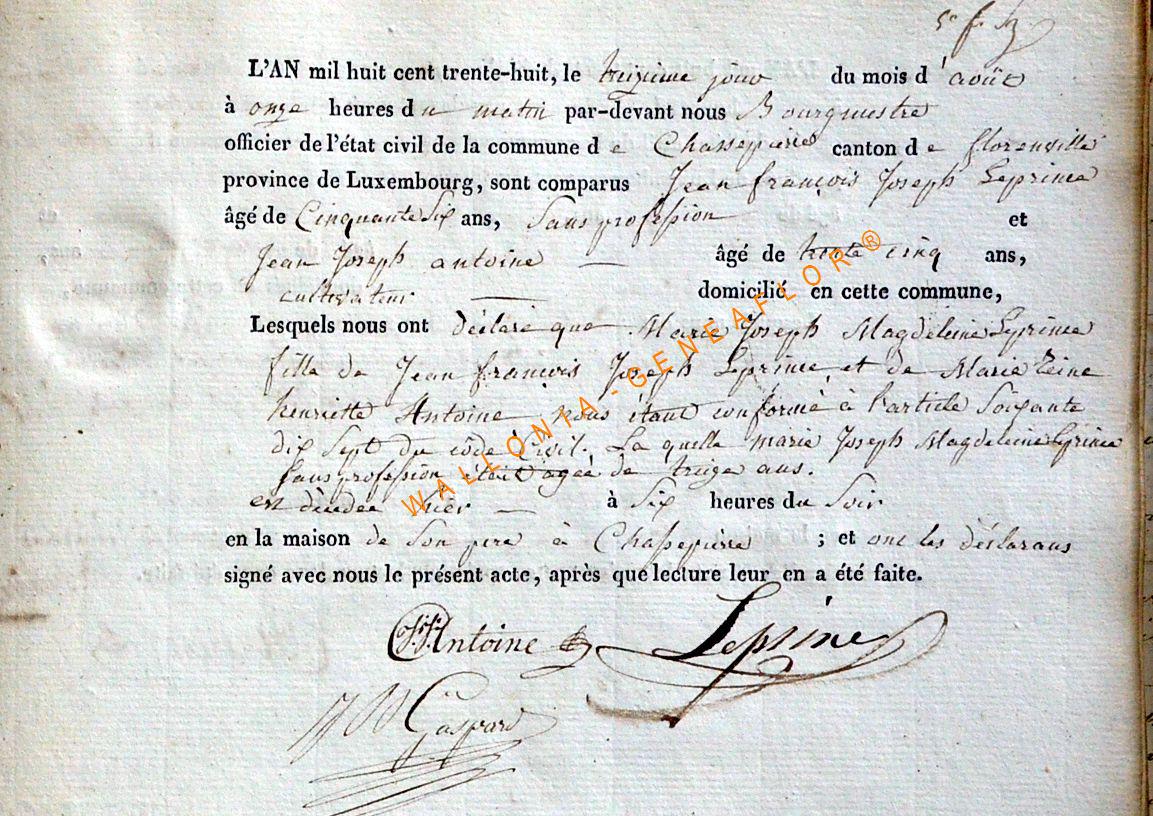 L'AN mil huit cent trente-huit, le treizième jour du mois d'août
à onze heures du matin par-devant nous Bourgmestre
officier de l'état civil de la commune de Chassepierre canton de florenville
province de Luxembourg, sont comparus Jean françois Joseph Leprince
âgé de Cinquante Six ans, Sans profession et
Jean Joseph antoine — âgé de trente cinq ans,
cultivateur — domicilié en cette commune,
Lesquels nous ont déclaré que Marie Joseph Magdeleine Leprince
fille de Jean françois Joseph Leprince et de Marie
henriette Antoine nous étant conformé à l'article Soixante
dix Sept du côde Civil. La quelle marie Joseph Magdeleine Leprince
Sans profession étoit agée de treize ans.
est décédée hier — à Six heures du Soir
en la maison de Son pere à Chassepierre ; et ont les déclarans
signé avec nous le présent acte, après que lecture leur en a été faite.
JJAntoine Leprince
Gaspard
WALLONIA-GENEAFLOR®